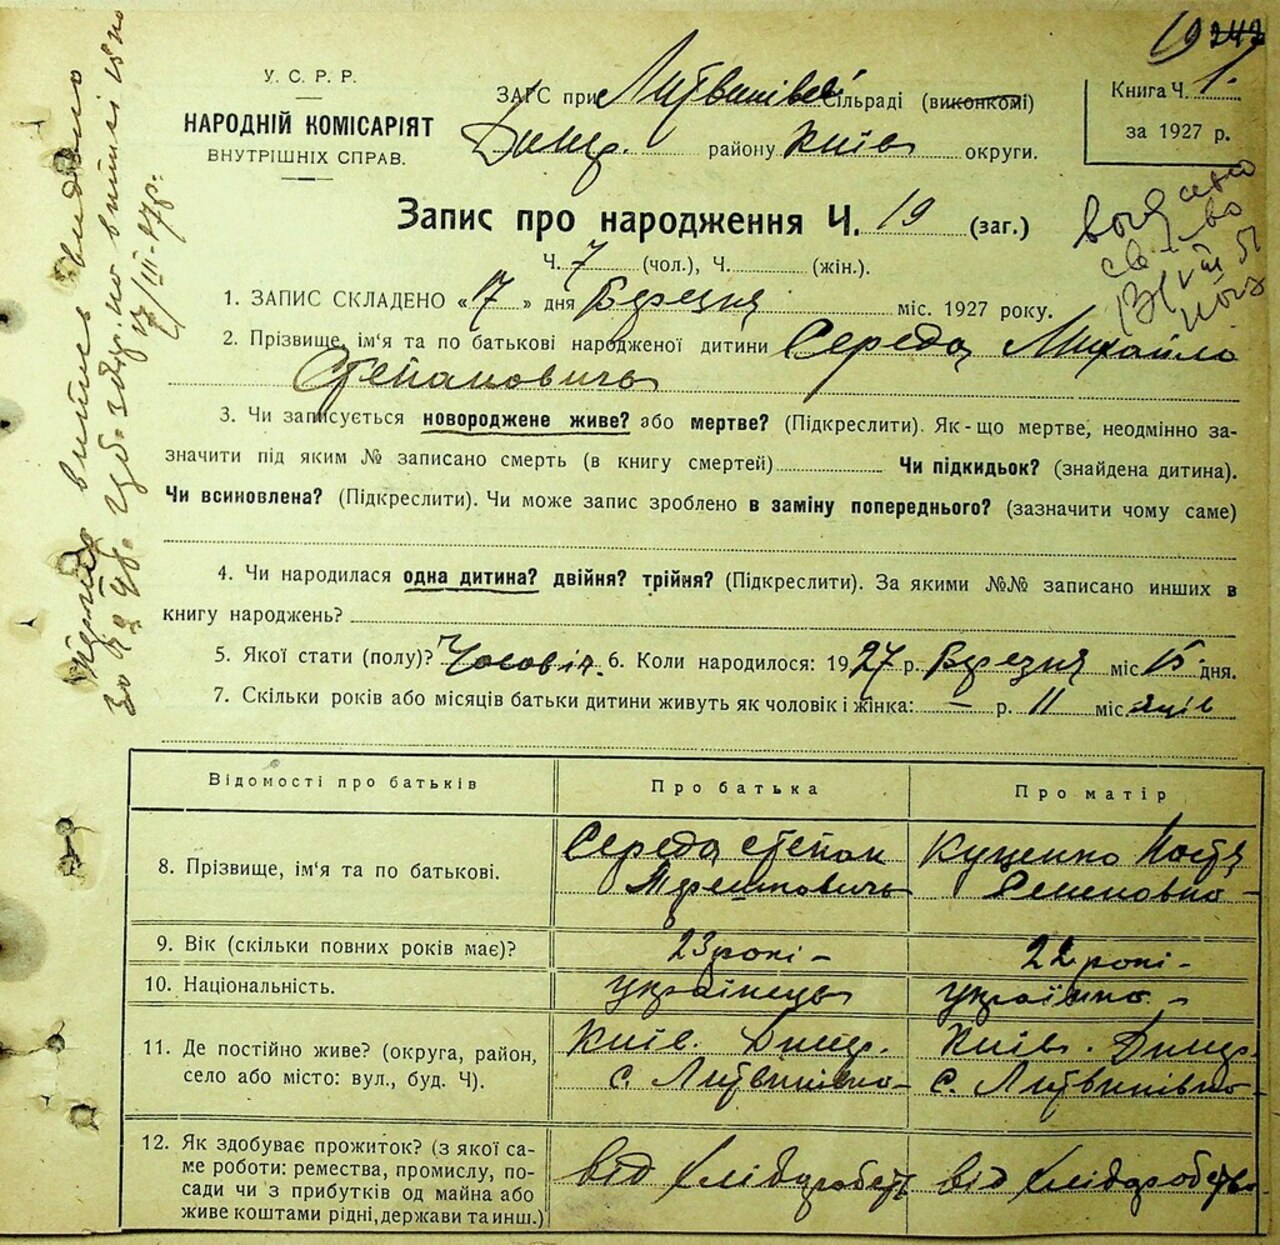 19 247
У. С. Р. Р.
НАРОДНІЙ КОМІСАРІЯТ
ВНУТРІШНІХ СПРАВ.
ЗАГС при Литвинівсь. Сільраді (виконкомі)
Димр. району Київ округи.
Книга Ч. 1.
за 1927 р.
Запис про народження Ч. 19 (заг.)
Ч. 7 (чол.), Ч. (жін.).
1. ЗАПИС СКЛАДЕНО «17» дня Березня міс. 1927 року.
2. Прізвище, ім'я та по батькові народженої дитини Середа Михайло
Степановичь
3. Чи записується новороджене живе? або мертве? (Підкреслити). Як-що мертве, неодмінно за-
значити під яким № записано смерть (в книгу смертей) Чи підкидьок? (знайдена дитина).
Чи всиновлена? (Підкреслити). Чи може запис зроблено в заміну попереднього? (зазначити чому саме)
4. Чи народилася одна дитина? двійня? трійня? (Підкреслити). За якими №№ записано инших в
книгу народжень?
5. Якої стати (полу)? Чоловіч. 6. Коли народилося: 1927 р. Березня міс 15 дня.
7. Скільки років або місяців батьки дитини живуть як чоловік і жінка: — р. 11 міс. яців
Відомості про батьків Про батька Про матір
8. Прізвище, ім'я та по батькові.
Середа Степан
Куценко Настя
Семеновна
9. Вік (скільки повних років має)? 23 рокі 22 рокі
10. Національність. українець українка
11. Де постійно живе? (округа, район,
село або місто: вул., буд. Ч).
Київ. Димр.
с. Литвинівка
Київ. Димр.
с. Литвинівка
12. Як здобуває прожиток? (з якої са-
ме роботи: ремества, промислу, по-
сади чи з прибутків од майна або
живе коштами рідні, держави та инш.)
від хлібаробств
від хлібаробства